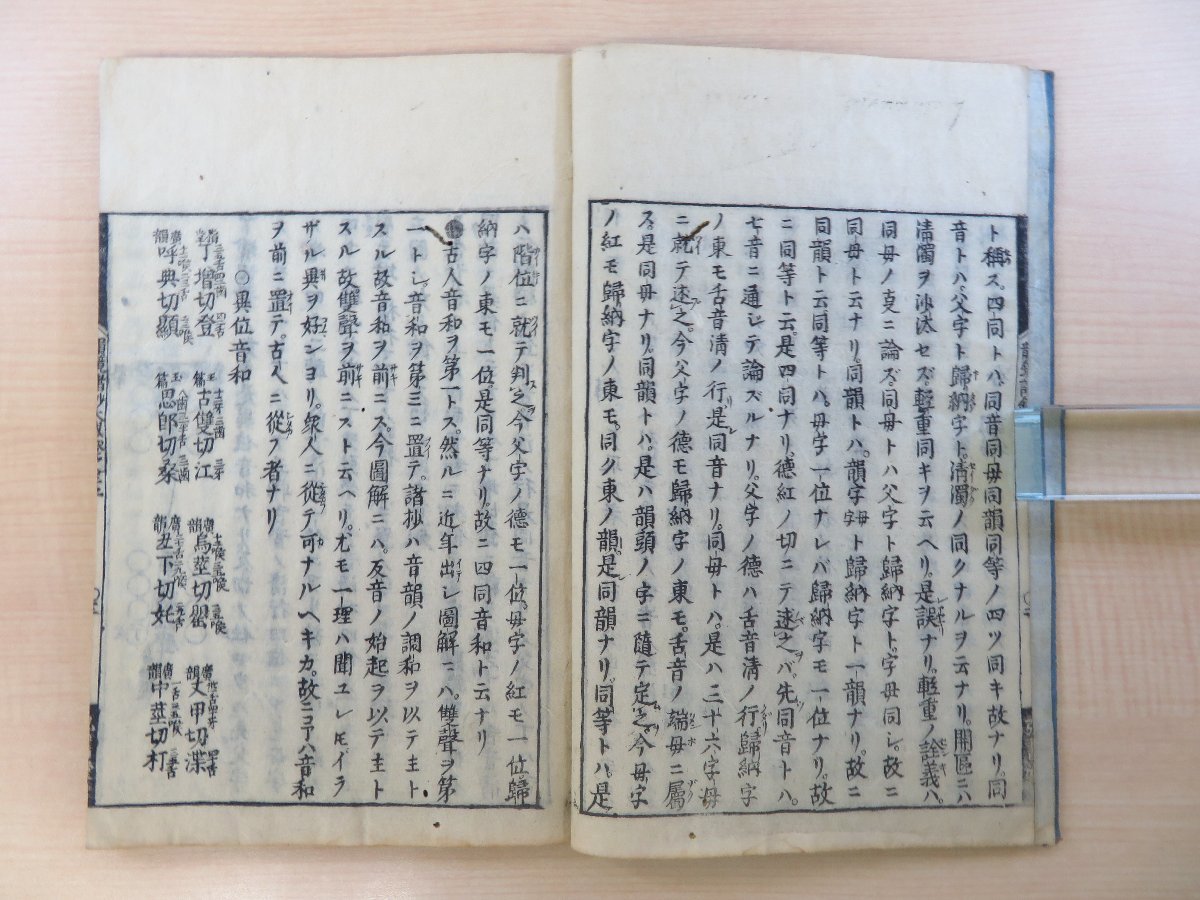 ト稱ス。四同トハ。同音同母同韻同等ノ四ツ同キ故ナリ。同
音トハ。父字ト歸納字ト。清濁ノ同クナルヲ云ナリ。開區ニハ
清濁ヲ沙汰セズ。輕重同キヲ云ヘリ。是誤ナリ。輕重ノ詮義ハ。
同母ノ時ニ論ズ。同母トハ父字ト歸納字ト。字母同シ。故ニ
同母ト云ナリ。同韻トハ。韻字母字ト歸納字ト一韻ナリ。故ニ
同韻ト云同等トハ。母字一位ナレバ歸納字モ一位ナリ。故
ニ同等ト云。是四同ナリ。德紅ノ切ニテ述之バ。先同音トハ。
七音ニ通シテ論ズルナリ。父字ノ德ハ舌音清ノ行歸納字
ノ東モ舌音清ノ行。是同音ナリ。同母トハ。是ハ三十六字母
ニ就テ述之。今父字ノ德モ歸納字ノ東モ。舌音ノ端母ニ屬
ス。是同母ナリ。同韻トハ。是ハ韻頭ノ字ニ隨テ定之。今母字
ノ紅モ歸納字ノ東モ。同ク東ノ韻。是同韻ナリ。同等トハ。是
ハ階位ニ就テ判之。今父字ノ德モ一位。母字ノ紅モ一位歸
納字ノ東モ一位。是同等ナリ。故ニ四同音和ト云ナリ
古人音和ヲ第一トス。然ルニ近年出シ圖解ニハ。雙聲ヲ第
一トシ。音和ヲ第三ニ置テ。諸抄ハ音韻ノ調和ヲ以テ主ト
スル故音和ヲ前ニス。今圖解ニハ。反音ノ始起ヲ以テ主ト
スル故雙聲ヲ前ニスト云ヘリ。尤モ一理ハ聞ユレ𪜈イラ
ザル異ヲ好ンヨリ。衆人ニ從テ可ナルヘキカ。故ニコヽハ音和
ヲ前ニ置テ。古人ニ從フ者ナリ
○異位音和
丁增切登 古雙切江 烏莖切甖 丈甲切渫
廣韻呼典切顯 玉篇思郎切桑 廣韻丑下切奼 廣韻中莖切打